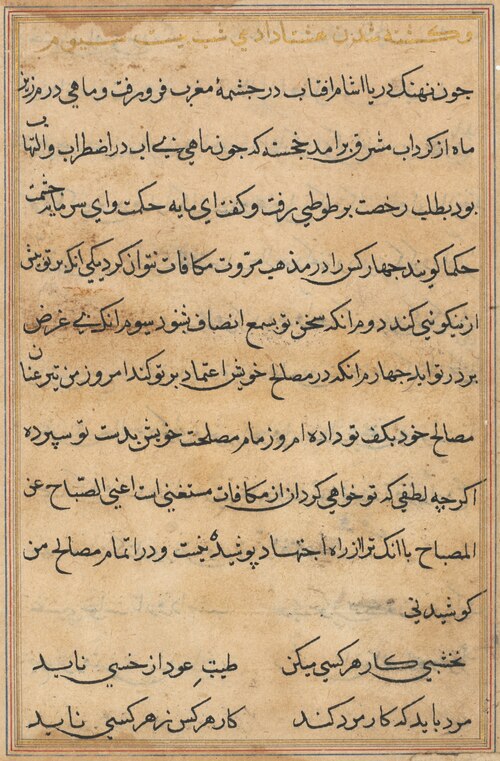 و کشته شدن هشتاد ادمی شب بیست سیوم
چون نهنک دریا اشام افتاب در چشمهٔ مغرب فرو رفت و ماهی در مرزیز
ماه از کرداب مشرق برامد خجسته که جون ماهی بی اب در اضطراب والتهاب
بود بطلب رخصت بر طوطی رفت و کفت ای مایه حکمت و ای سرمایه حشمت
حکما کویند جهار کس را در مذهب مروت مکافات نتوان کرد یکی انکه بر تو پیش
از نیکویی کند دوم انکه سخن تو بسمع انصاف شنود سیوم انک بی غرض
بر در تو اید جهارم انکه در مصالح خویش اعتماد بر تو کند امروز من نیز عنان
مصالح خود بکف تو داده ام و زمام مصلحت خویش بدست تو سپرده
اکرچه لطفی که تو خواهی کرد ان از مکافات مستغنی است اعنی الصباح عن
المصباح باانک ترا از راه اجتهاد پوشیده نیست و در اتمام مصالح من
کوشیدنی
نخشبی کار هر کسی میکن
طیب عود از خسی ناید
مرد باید که کار مرد کند
کار هر کس ز هر کسی ناید